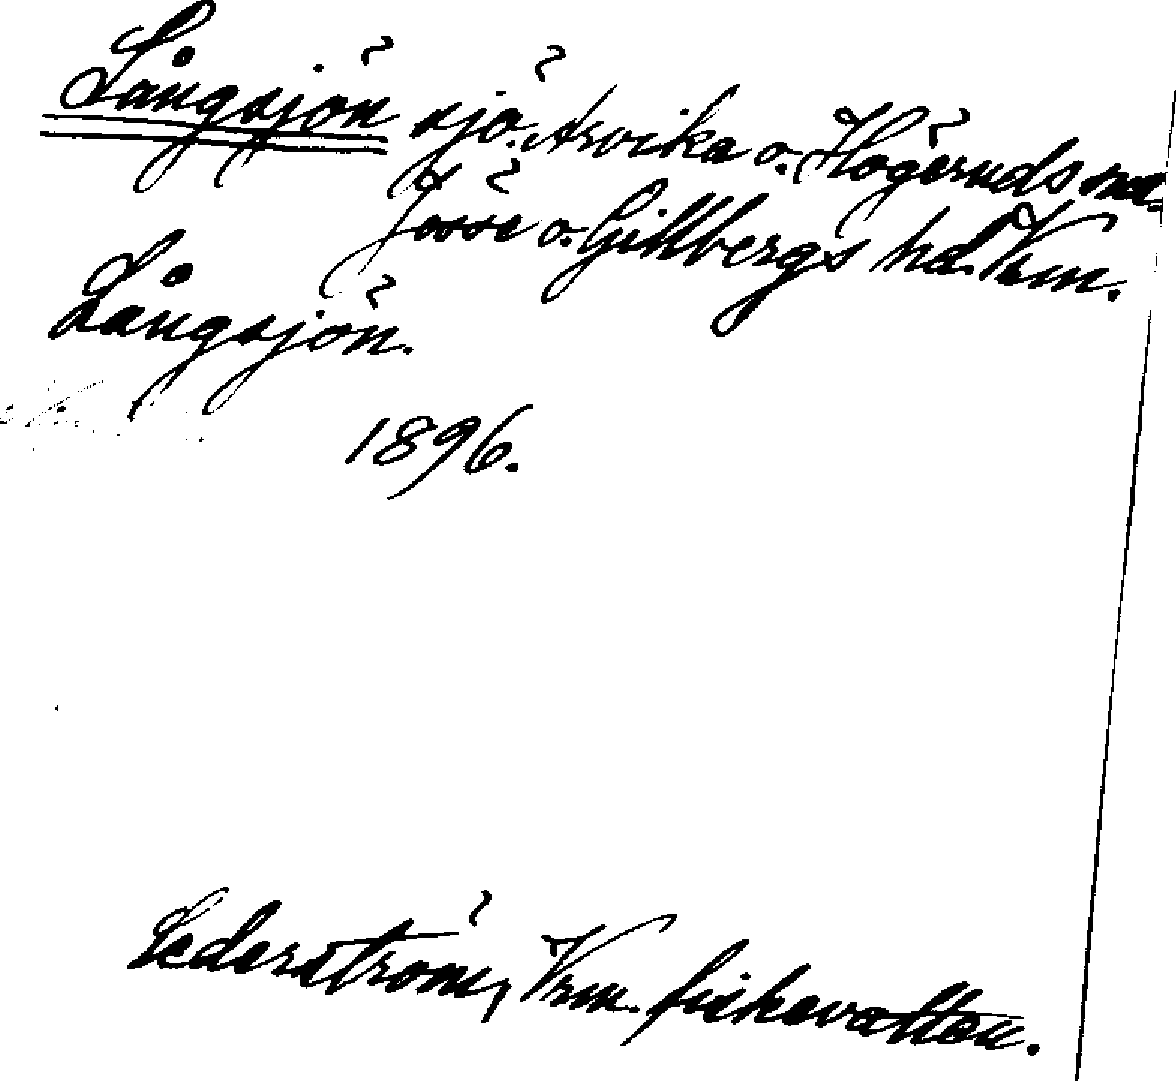 Långsjön sjö. Arvika o. Högeruds snr.
Jösse o. Gillbergs hd. Vrm.
Långsjön.
1896.
Cederström, Vrm. fiskevatten.